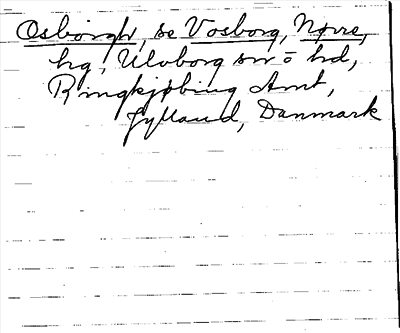 Osborgh, se Vosborg, Nørre,
hg, Ulvborg sn o hd,
Ringkjøbing Amt,
Jylland, Danmark